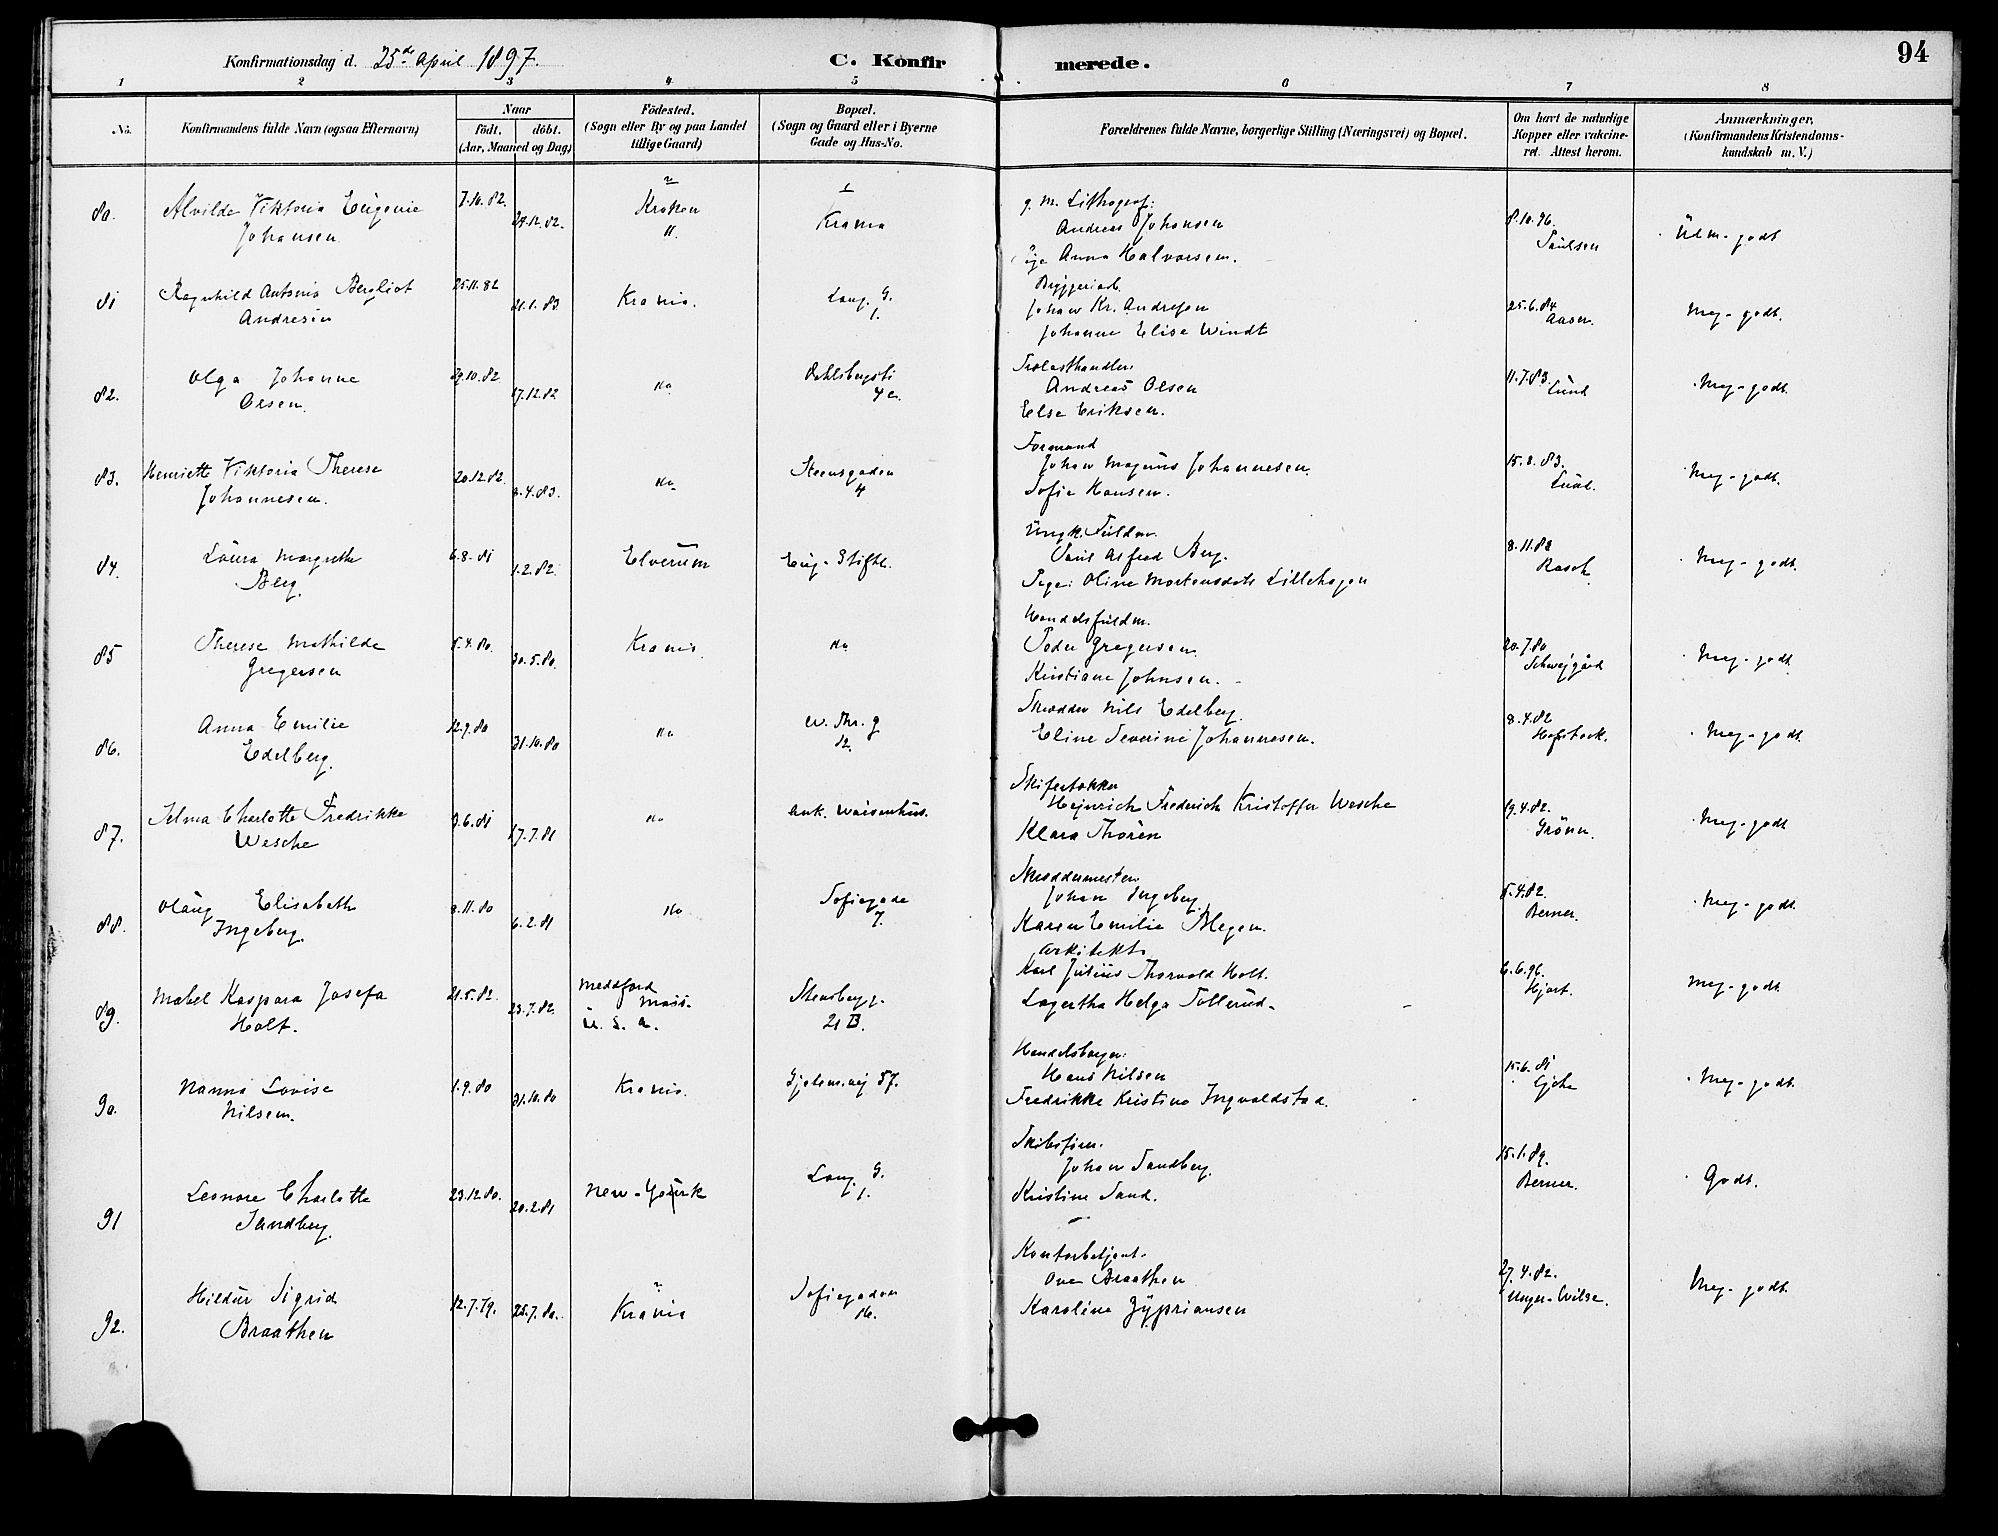 94
Konfirmationsdag d. 25de April 1897.
C. Konfirmerede.
1 2 3 4 5 6 7 8
No.
Konfirmandens fulde Navn (ogsaa Efternavn)
Naar
födt. döbt.
(Aar, Maaned og Dag)
Födested.
(Sogn eller By og paa Landet
tillige Gaard)
Bopæl.
(Sogn og Gaard eller i Byerne
Gade og Hus-No.
Forældrenes fulde Navne, borgerlige Stilling (Næringsvei) og Bopæl.
Om havt de naturlige
Kopper eller vakcine-
ret. Attest herom.
Anmærkninger,
(Konfirmandens Kristendoms-
kundskab m. V.)
80. Alvilde Viktoria Eugenie
Johansen
7.10.82.
Lithograf:
Andreas Johansen
Pige Anna Halvorsen.
8.10.96
Paulsen
Ulm-godt
81 Ragnhild Antonia Bergliot
Andresen
25.11.82
21.1.83
Krania.
Lang. G.
1.
Johan Kr. Andresen
Johanne Elise Windt
25.6.84
Aasen.
Meg-godt.
82. Olga Johanne
Olsen.
29.10.82
17.12.82
do
4c.
Andreas Olsen
Else Eriksen.
11.7.83.
Lund
Meg-godt.
83. Henriette Viktoria Therese
Johannesen.
20.12.82.
8.4.83.
do
Steensgaden
4
Formand
Johan Magnus Johannesen.
Sofie Hansen.
15.8.83.
Lund.
Meg-godt.
84. Laura Margrethe
Berg.
6.8.81
1.2.82.
Elverum
Eug. Stiftl.
Paul Alfred Berg.
Pige: Oline Mortensdatt. Lillehagen
8.11.82
Rasch
Meg-godt.
85 Therese Mathilde
Gregersen
5.4.80.
30.5.80.
Krania.
do
Handelsfuldm.
Peder Gregersen
Kristiane Johnsen.
20.7.80
Schwejgård
Meg-godt
86. Anna Emilie
Edelberg.
12.9.80
31.10.80
do
W. Thr. g
12.
Skrædder Nils Edelberg.
Eline Severine Johannesen.
8.4.82
Hofstock.
Meg-godt.
87. Selma Charlotte Fredrikke
Wesche
3.6.81
17.7.81
do
Ank. Waisenhus.
Skifertækker
Hejnrich Frederich Kristoffer Wesche
Klara Thorén
19.4.82.
Grönn.
Meg-godt
88. Olaug Elisabeth
Ingeberg.
8.11.80
6.2.81
do
Sofiegade
7.
Skræddermester
Johan Ingeberg
Karen Emilie Megen.
5.4.82.
Berner.
Meg-godt.
89. Mabel Kaspara Josefa
Holt.
21.5.82.
23.7.82.
Meddford
Mass.
U. S. A.
Stensbergg.
21 B.
Arkitekt
Karl Julius Thorvald Holt.
Lagertha Helga Tollerud.
6.6.96.
Hjort.
Meg-godt
90. Nanna Lovise
Nilsen.
1.9.80
31.10.80
Krania.
Gjetem.vej 57.
Handelsborger:
Hans Nilsen
Fredrikke Kristine Ingvaldstad.
15.6.81
Gjche
Meg-godt.
91 Leonore Charlotte
Sandberg.
23.12.80.
20.2.81
New-York
Lang. G.
1.
Skibsfører.
Johan Sandberg.
Kristine Sand.
15.1.89.
Berner.
Godt.
92. Hildur Sigrid
Braathen
12.7.79.
25.7.80.
Krania
Sofiegaden
16.
Kontorbetjent.
Ove Braathen
Karoline Zypriansen
27.4.82.
Meyer-Wilse.
Meg-godt.